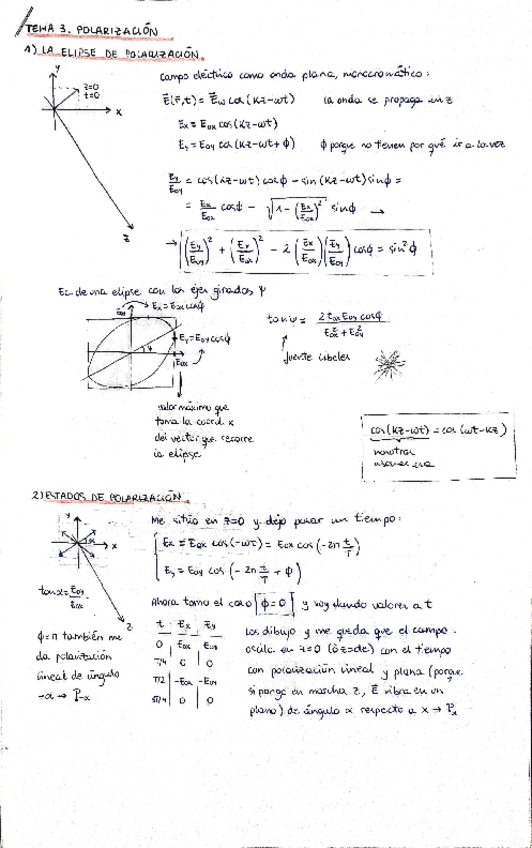 TEMA 3. POLARIZACIÓN
1) LA ELIPSE DE POLARIZACIÓN.
y
z=0
t=0
x
z
Campo eléctrico como onda plana, monocromático:
E(r,t) = E₀ cos(kz-ωt) la onda se propaga en z
Ex = E₀x cos(kz-ωt)
Ey = E₀y cos(kz-ωt+ϕ) ϕ porque no tienen por qué ir a la vez
Ey/E₀y = cos(kz-ωt)cosϕ - sin(kz-ωt)sinϕ =
= Ex/E₀x cosϕ - √(1-(Ex/E₀x)²) sinϕ →
→ (Ey/E₀y)² + (Ex/E₀x)² - 2(Ex/E₀x)(Ey/E₀y)cosϕ = sin²ϕ
Ec. de una elipse con los ejes girados ψ
E₀y → Ex = E₀x cosϕ
Ey = E₀y cosϕ
ψ
E₀x
valor máximo que
toma la coord. x
del vector que recorre
la elipse
fuente
cos(kz-ωt) = cos(ωt-kz)
nosotros
2) ESTADOS DE POLARIZACIÓN
y
α
x
z
tanα = E₀y/E₀x
ϕ=π también me
da polarización
lineal de ángulo
-α → P-α
Me sitúo en z=0 y dejo pasar un tiempo:
Ex = E₀x cos(-ωt) = E₀x cos(-2π t/T)
Ey = E₀y cos(-2π t/T + ϕ)
Ahora tomo el caso ϕ=0 y voy dando valores a t
t Ex Ey
0 E₀x E₀y
T/4 0 0
T/2 -E₀x -E₀y
0 0
Los dibujo y me queda que el campo
oscila en z=0 (ó z=cte) con el tiempo
con polarización lineal y plana (porque
si pongo en marcha z, E vibra en un
plano) de ángulo α respecto a x → Pα